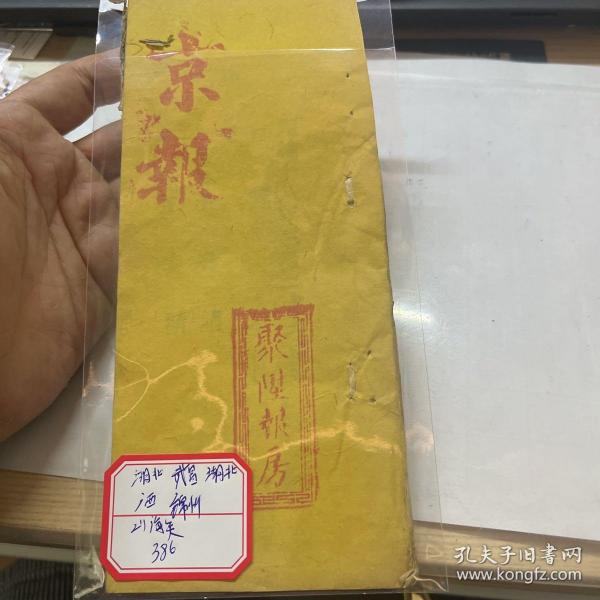 京報
聚陞報房
湖北 武昌 湖北
酒 錦州
山海关
386
孔夫子旧书网
www.kongfz.com